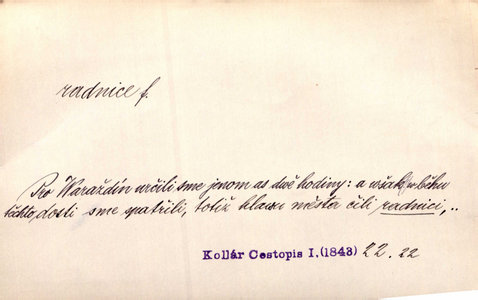 radnice f.
Pro Waraždín určili sme jenom as dvě hodiny: a však w běhu
těchto, dosti sme spatřili, totiž hlawu města čili radnici,..
Kollár Cestopis I.(1843) 22. 22